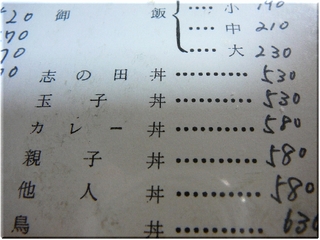 御飯 小 140
中 210
大 230
志の田丼 ……… 530
玉子丼 ……… 530
カレー丼 ……… 580
親子丼 ……… 580
他人丼 ……… 580
鳥丼 ……… 630